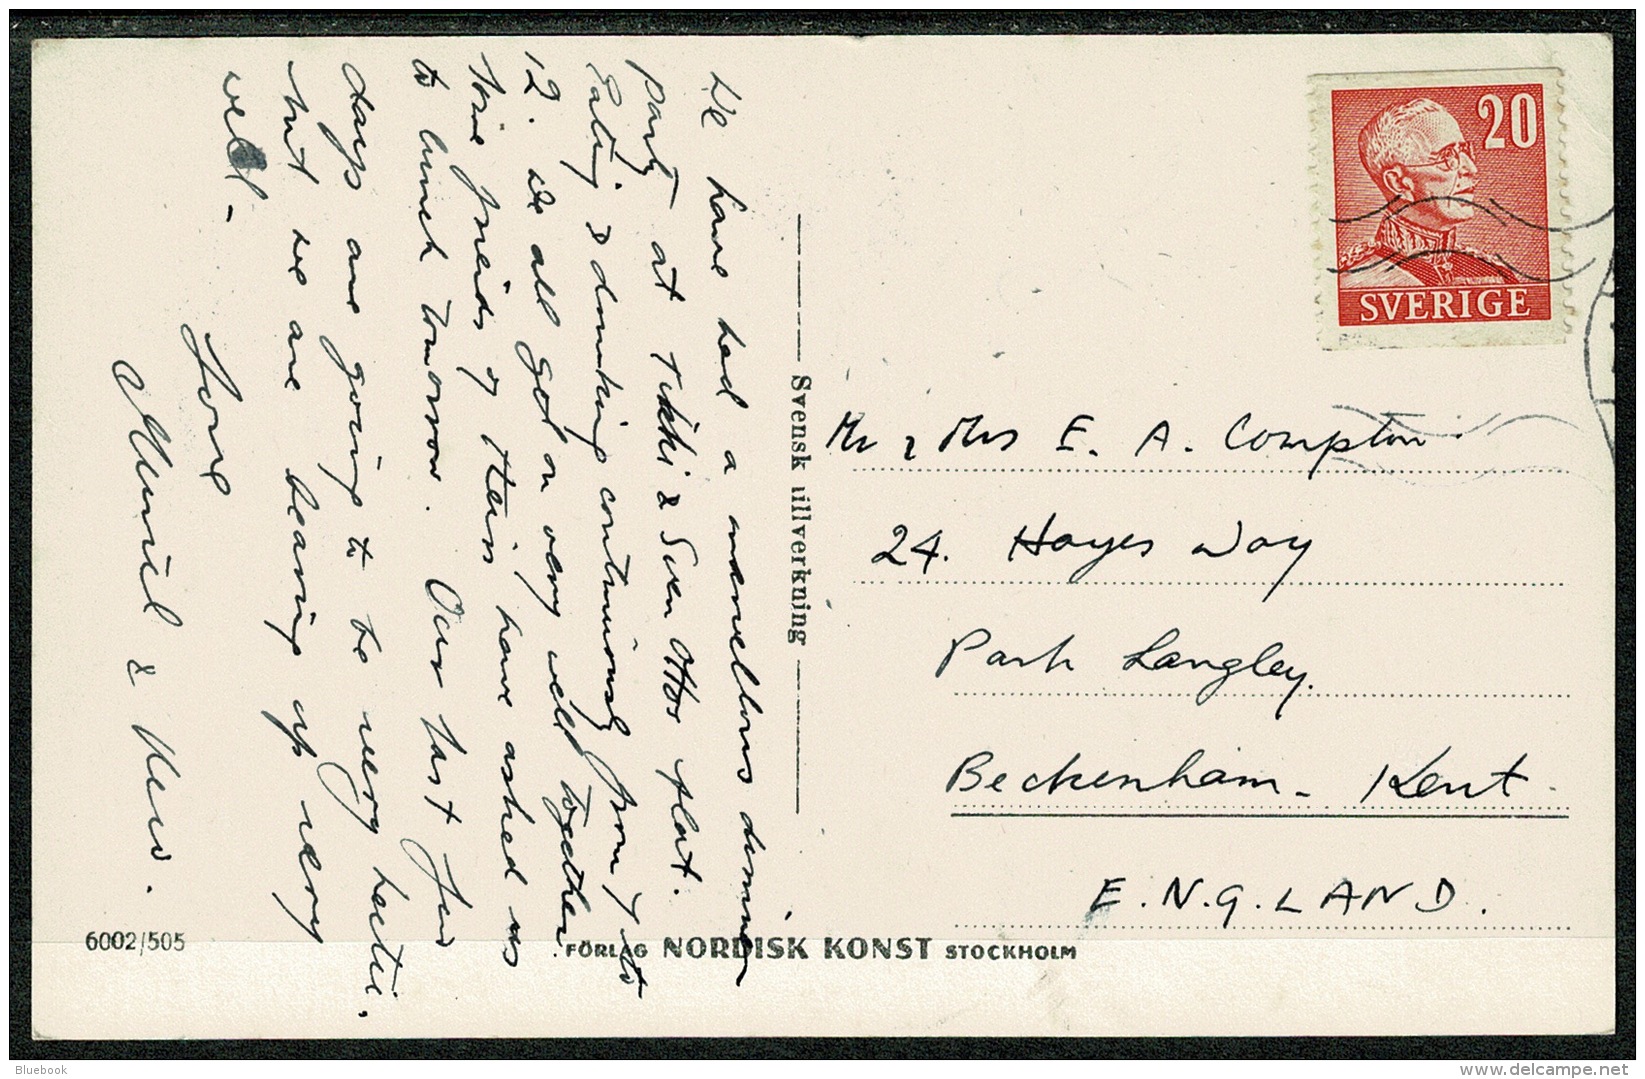 We have had a marvellous dinner
party at Tikki & Sven Otto's flat.
Eating & drinking continuously from 7 to
12. We all got on very well together
Nine friends of theirs have asked us
to lunch tomorrow. Our last few
days are going to be very hectic.
but we are bearing up very
well -
Love
Muriel & Ken.
Svensk tillverkning
20
SVERIGE
Mr & Mrs E. A. Compton.
24. Hayes Way
Park Langley.
Beckenham - Kent.
E.N.G.LAND.
6002/505
FÖRLAG NORDISK KONST STOCKHOLM
Bluebook
www.delcampe.net